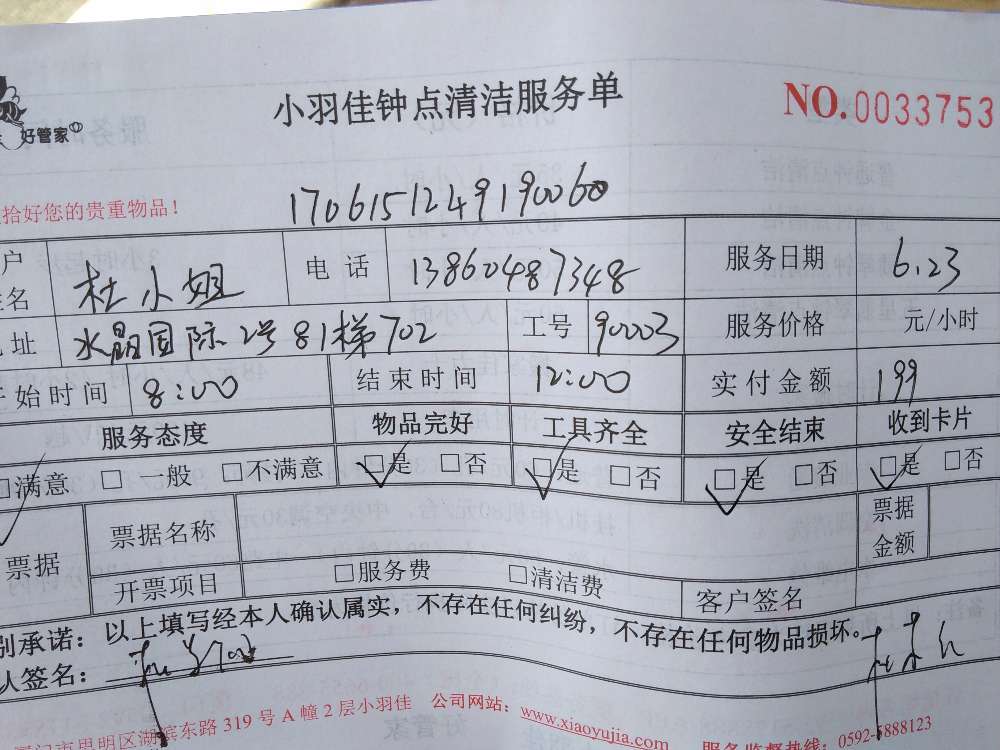 小羽佳钟点清洁服务单
NO.0033753
好管家
拾好您的贵重物品！
170615124919 0060
户 签名 杜小姐 电话 13860487348 服务日期 6.23
址 水晶国际2号81梯702 工号 90003 服务价格 元/小时
开始时间 8:00 结束时间 12:00 实付金额 199
服务态度 物品完好 工具齐全 安全结束 收到卡片
□满意 □一般 □不满意 □是 □否 □是 □否 □是 □否 □是 □否
票据 票据名称 票据金额
开票项目 □服务费 □清洁费 客户签名
别承诺：以上填写经本人确认属实，不存在任何纠纷，不存在任何物品损坏。
人签名：
厦门市思明区湖滨东路319号A幢2层小羽佳 公司网站：www.xiaoyujia.com 服务监督热线：0592-5888123